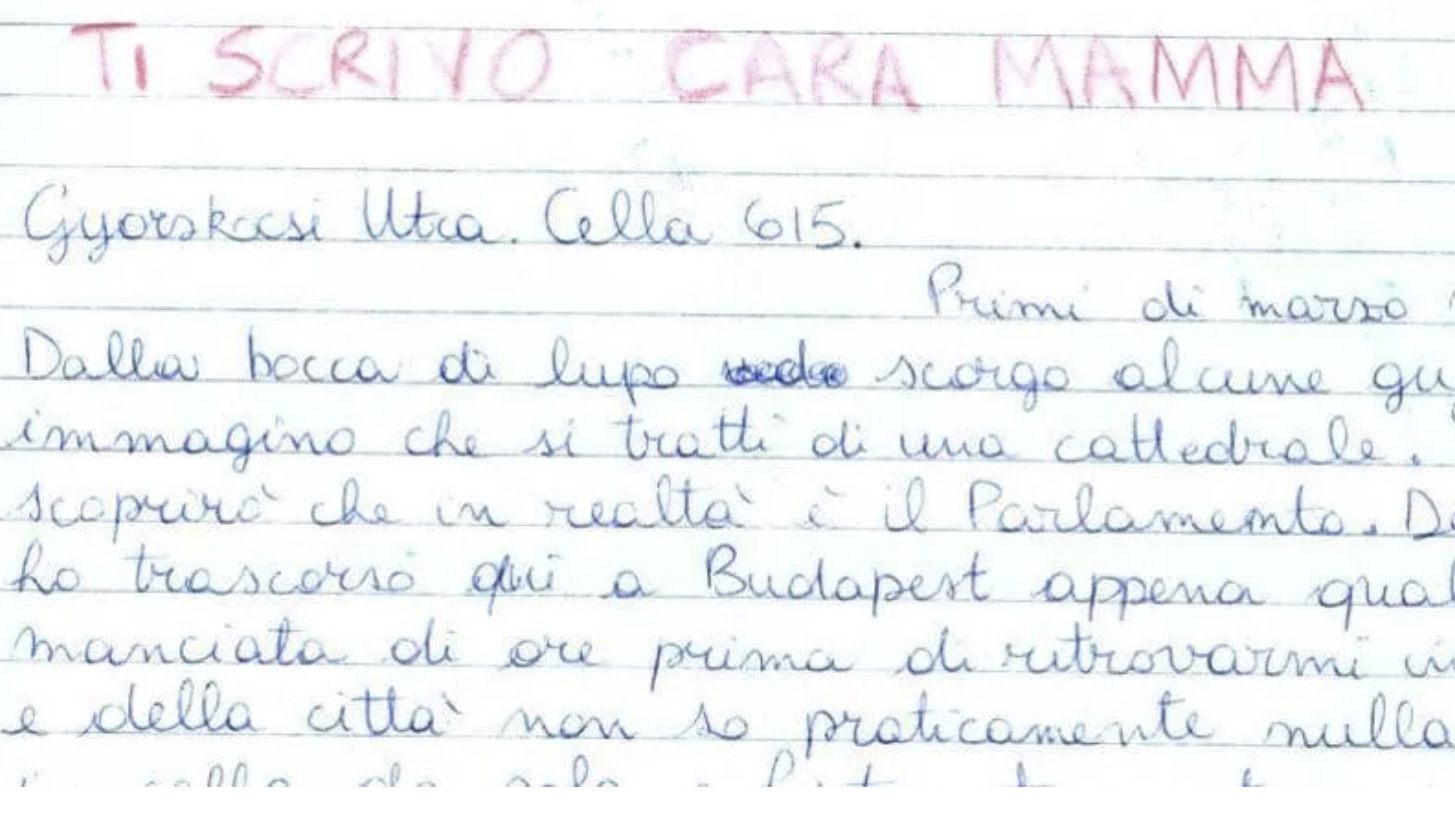 TI SCRIVO CARA MAMMA
Gyorskocsi Utca. Cella 615.
Primi di marzo
Dalla bocca di lupo scorgo alcune gu
immagino che si tratti di una cattedrale.
scoprirò che in realtà è il Parlamento. D
ho trascorso qui a Budapest appena qual
manciata di ore prima di ritrovarmi in
e della città non so praticamente nulla